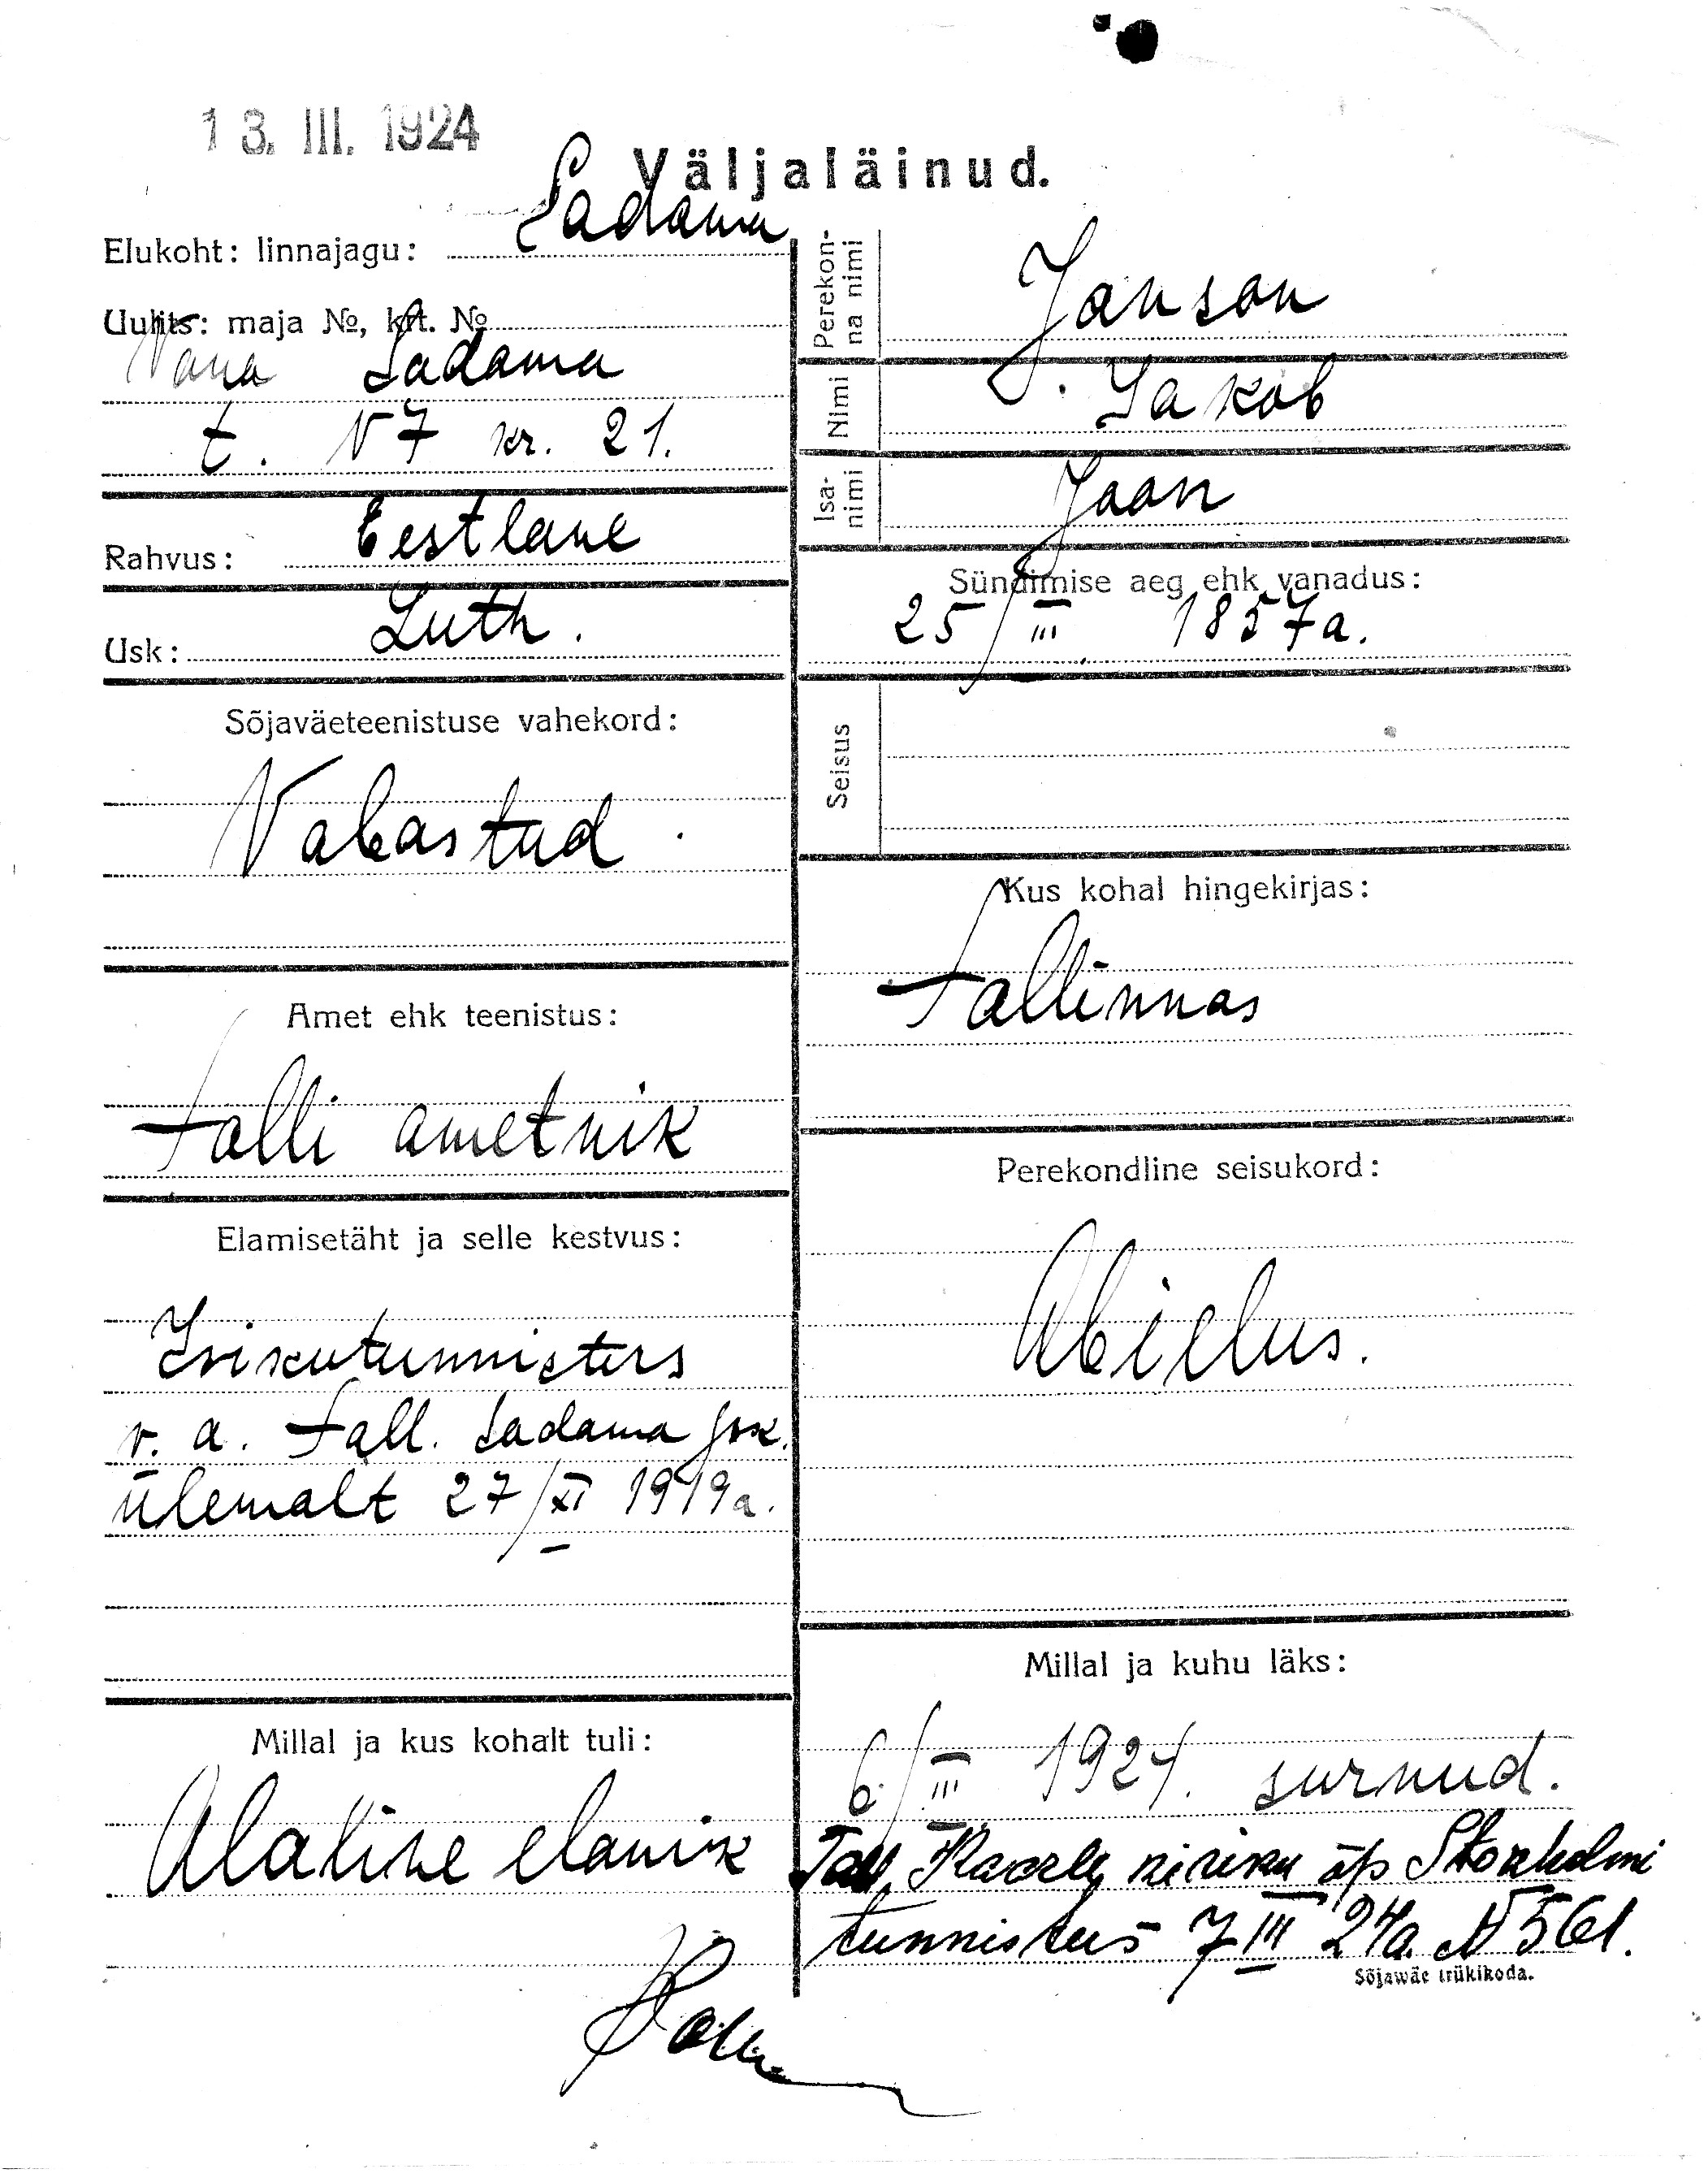 13. III. 1924
Väljaläinud.
Elukoht: linnajagu: Sadama
Uulits: maja №, krt. №
Vana Sadama
t. N 7 kr. 21.
Rahvus: Eestlane
Usk: Luth.
Sõjaväeteenistuse vahekord:
Vabastud.
Amet ehk teenistus:
Talli ametnik
Elamisetäht ja selle kestvus:
Isikutunnistus
v. a. Tall. Sadama jsk.
ülemalt 27/XI 1919 a.
Millal ja kus kohalt tuli:
Alaline elanik
Perekonna nimi
Janson
Nimi
Jakob
Isanimi
Jaan
Sündimise aeg ehk vanadus:
25/III 1857 a.
Seisus
Kus kohal hingekirjas:
Tallinnas
Perekondline seisukord:
Abielus.
Millal ja kuhu läks:
6/III 1924. surnud.
Tall Kaarli kiriku õp Stokholmi
tunnistus 7 III 24 a. N 561.
Sõjawäe trükikoda.